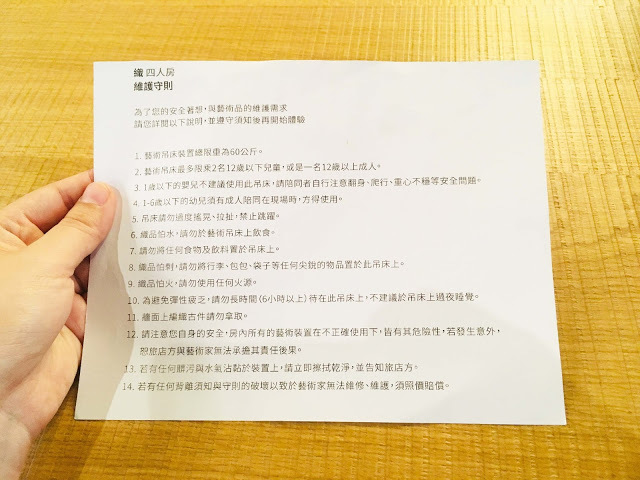 織 四人房
維護守則
為了您的安全著想，與藝術品的維護需求
請您詳閱以下說明，並遵守須知後再開始體驗
1. 藝術吊床裝置總限重為60公斤。
2. 藝術吊床最多限乘2名12歲以下兒童，或是一名12歲以上成人。
3. 1歲以下的嬰兒不建議使用此吊床，請陪同者自行注意翻身、爬行、重心不穩等安全問題。
4. 1-6歲以下的幼兒須有成人陪同在現場時，方得使用。
5. 吊床請勿過度搖晃、拉扯，禁止跳躍。
6. 織品怕水，請勿於藝術吊床上飲食。
7. 請勿將任何食物及飲料置於吊床上。
8. 織品怕刺，請勿將行李、包包、袋子等任何尖銳的物品置於此吊床上。
9. 織品怕火，請勿使用任何火源。
10. 為避免彈性疲乏，請勿長時間（6小時以上）待在此吊床上，不建議於吊床上過夜睡覺。
11. 牆面上編織古件請勿拿取。
12. 請注意您自身的安全，房內所有的藝術裝置在不正確使用下，皆有其危險性，若發生意外，
恕旅店方與藝術家無法承擔其責任後果。
13. 若有任何髒污與水氣沾黏於裝置上，請立即擦拭乾淨，並告知旅店方。
14. 若有任何背離須知與守則的破壞以致於藝術家無法維修、維護，須照價賠償。